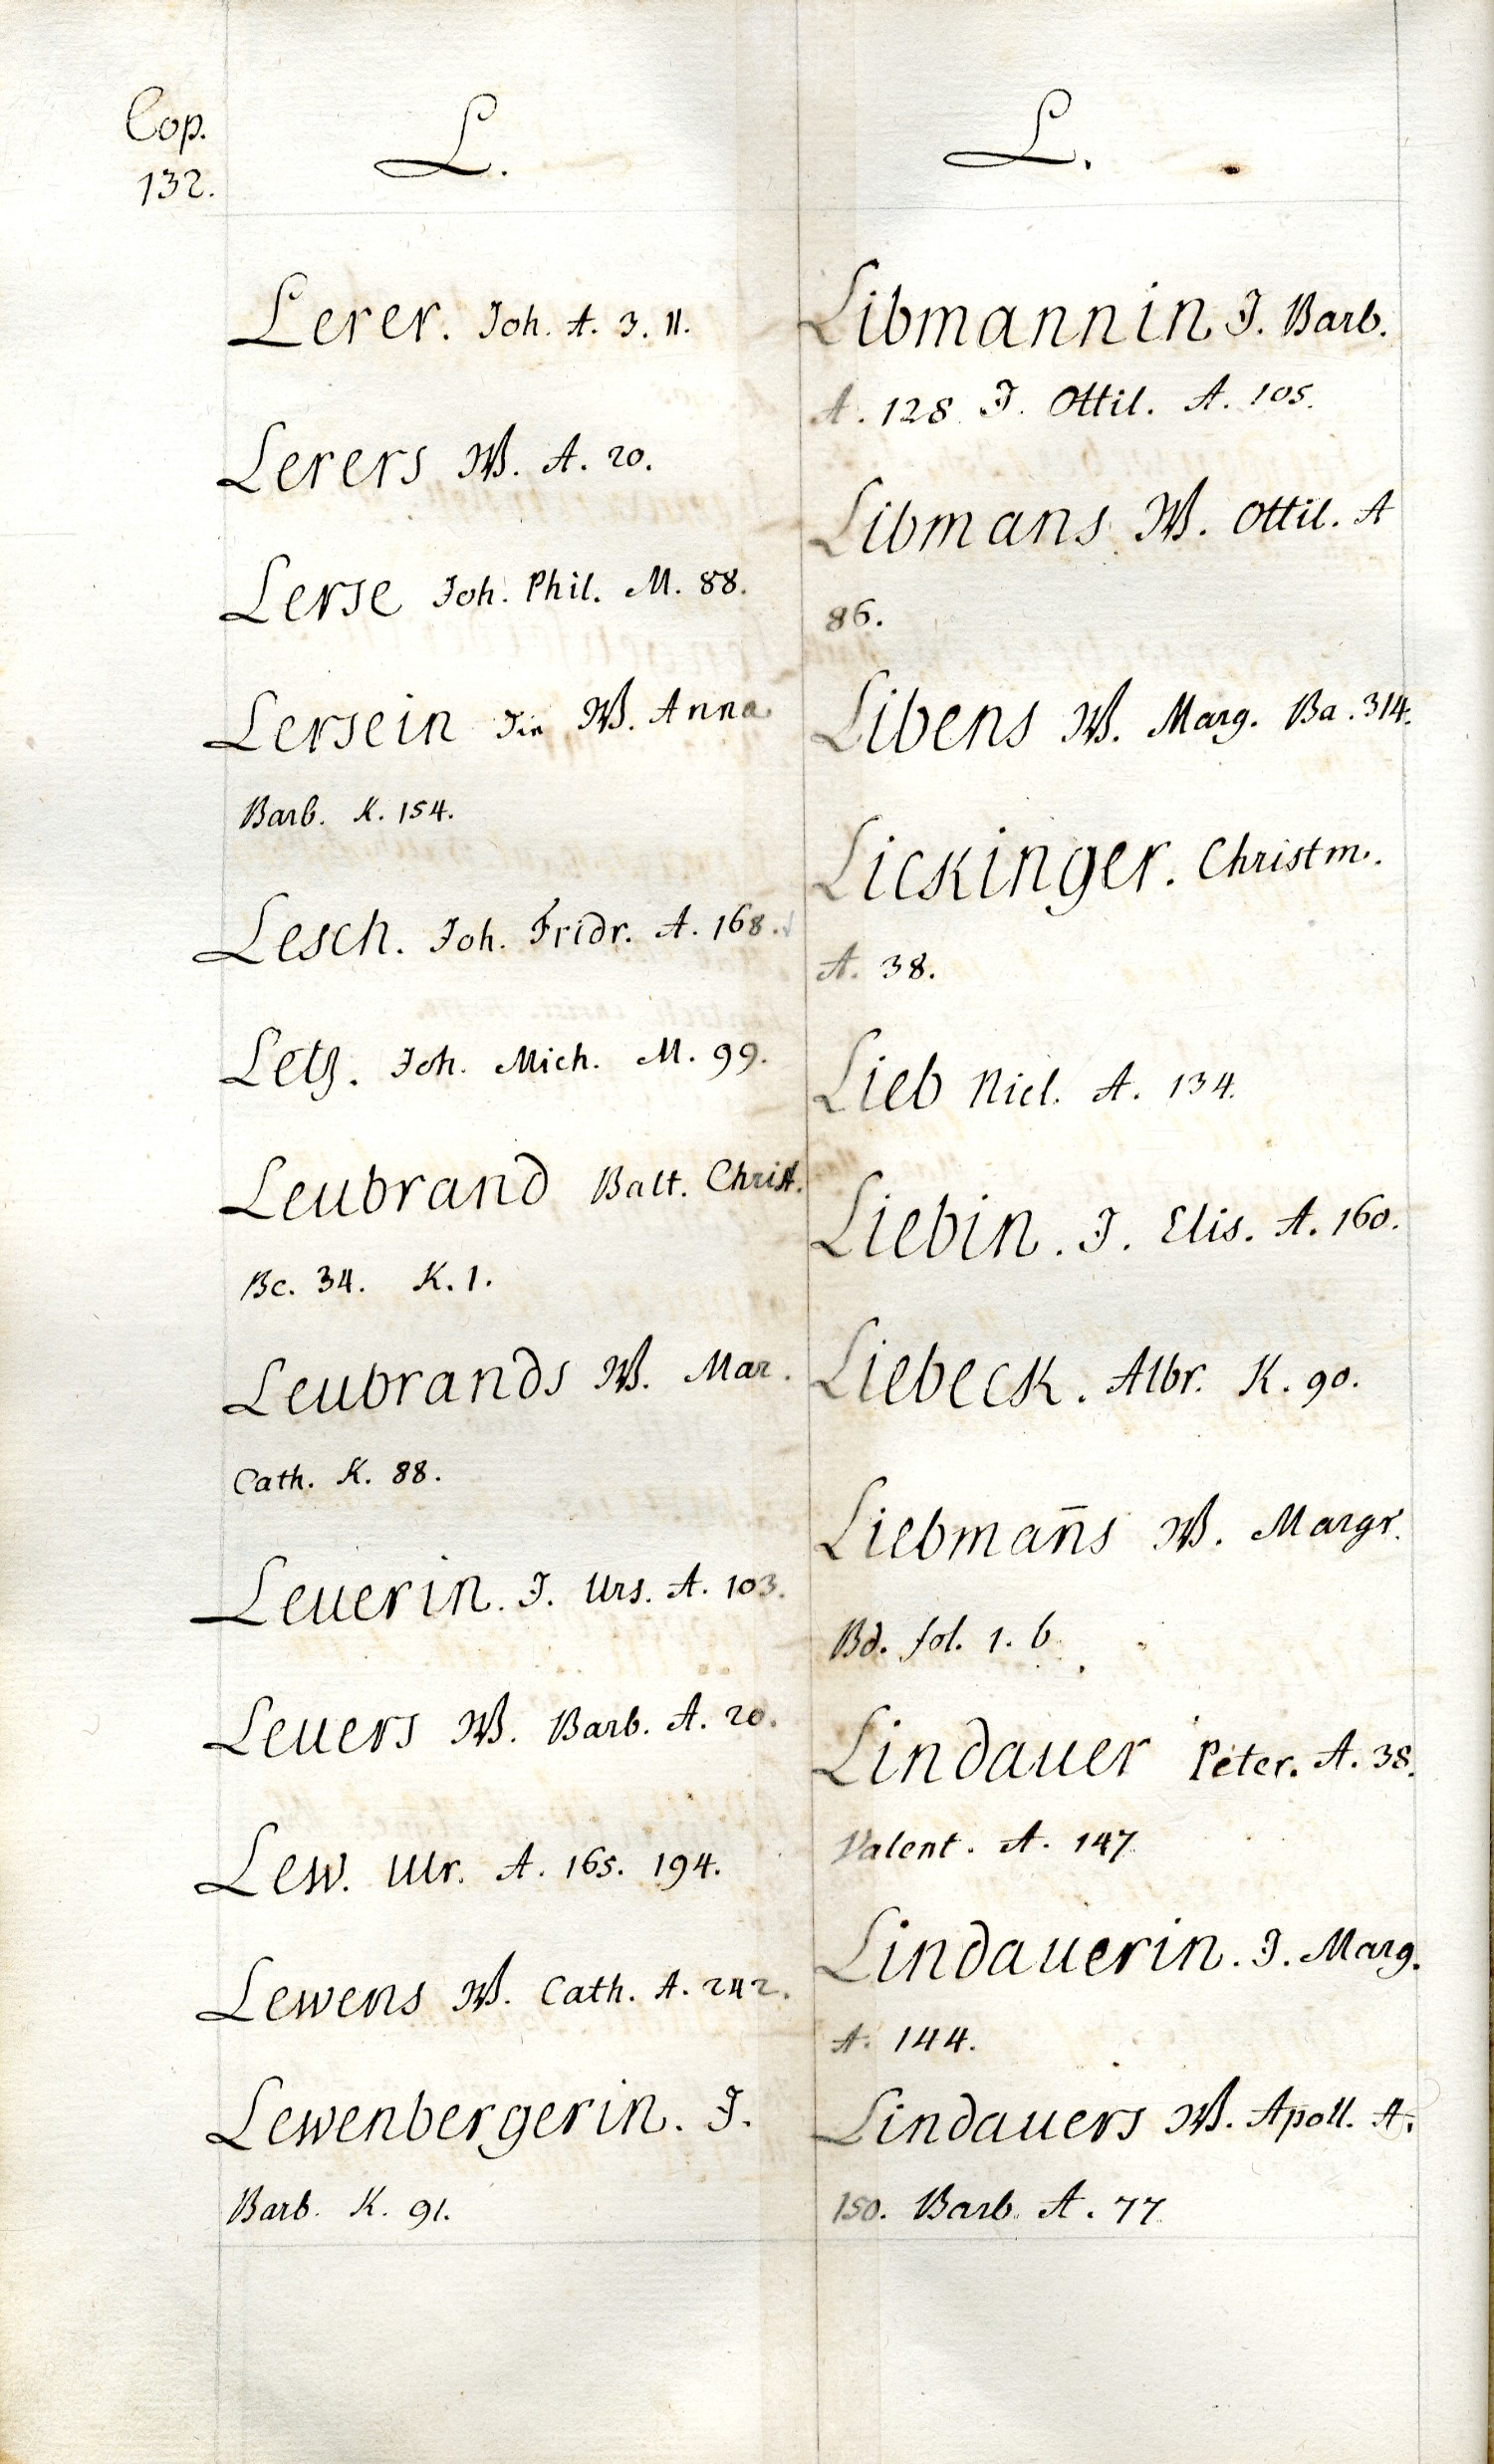 Cop.
132.
L.
Lerer. Joh. A. 3. 11.
Lerers W. A. 20.
Lerse Joh. Phil. M. 88.
Lersein die W. Anna
Barb. K. 154.
Lesch. Joh. Fridr. A. 168.
Letz. Joh. Mich. M. 99.
Leubrand Balt. Christ.
Bc. 34. K. 1.
Leubrands W. Mar.
Cath. K. 88.
Leuerin. J. Urs. A. 103.
Leuers W. Barb. A. 20.
Lew. Ulr. A. 165. 194.
Lewens W. Cath. A. 242.
Lewenbergerin. J.
Barb. K. 91.
L.
Libmannin J. Barb.
A. 128 J. Ottil. A. 105.
Libmans W. Ottil. A
86.
Libens W. Marg. Ba. 314.
Lickinger. Christm.
A. 38.
Lieb Nicl. A. 134.
Liebin. J. Elis. A. 160.
Liebeck. Albr. K. 90.
Liebman̄s W. Margr.
Bd. fol. 1. b
Lindauer Peter. A. 38.
Valent. A. 147
Lindauerin. J. Marg.
A. 144.
Lindauers W. Apoll. A.
150. Barb. A. 77